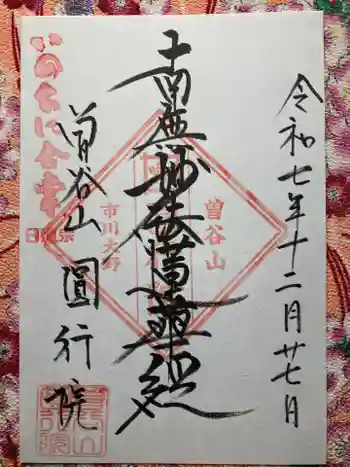 令和七年十二月廿七日
南無妙法蓮華経
曽谷山
市川大野
曽谷山 圓行院
いのちに合掌